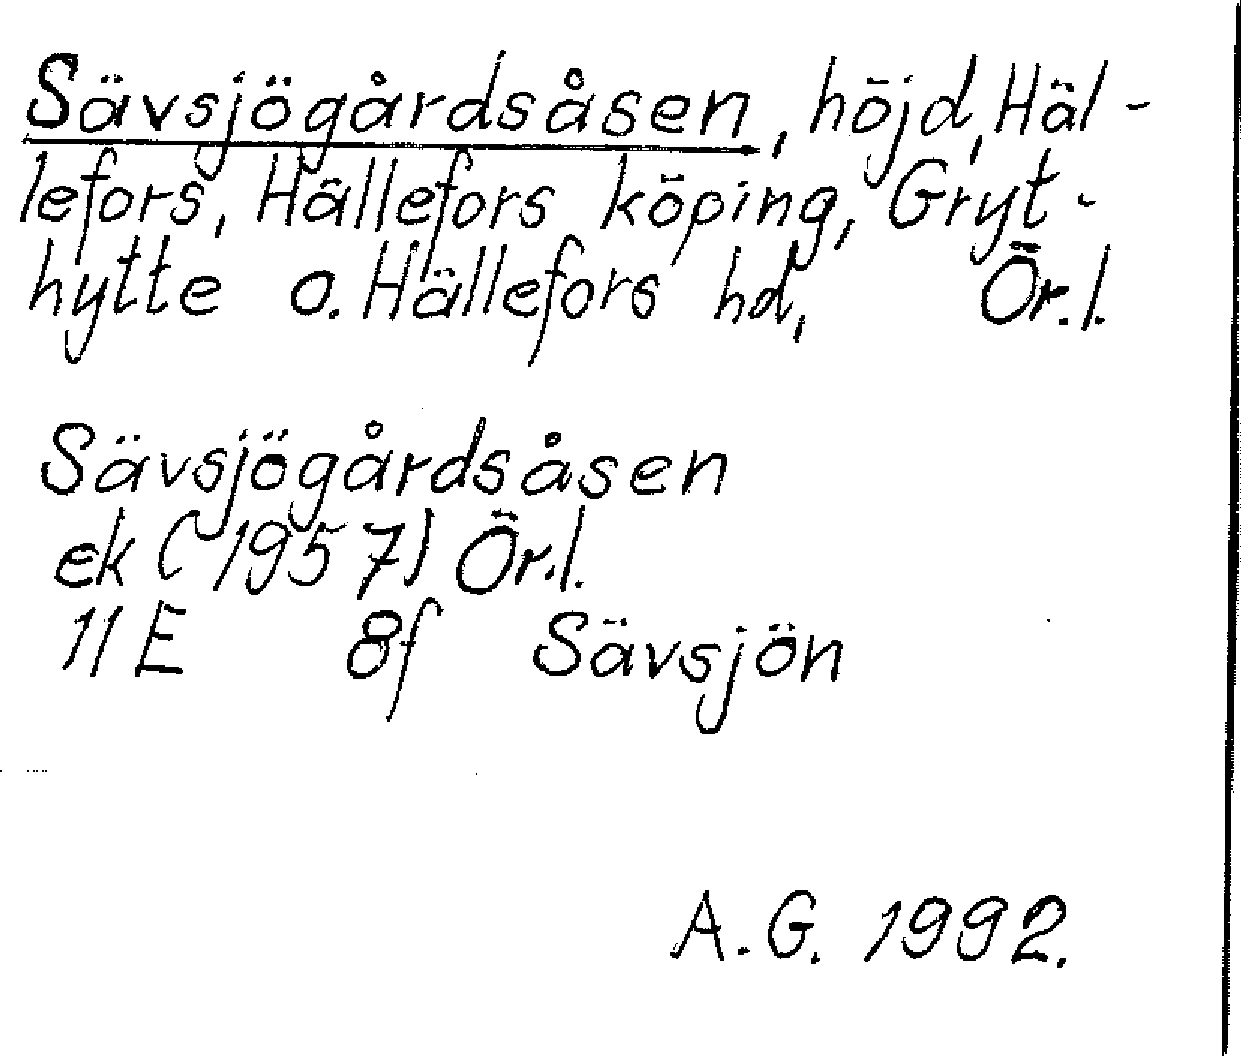 Sävsjögårdsåsen, höjd, Häl-
lefors, Hällefors köping, Gryt-
hytte o. Hällefors hd, Ör.l.
Sävsjögårdsåsen
ek (1957) Ör.l.
11 E 8f Sävsjön
A.G. 1992.